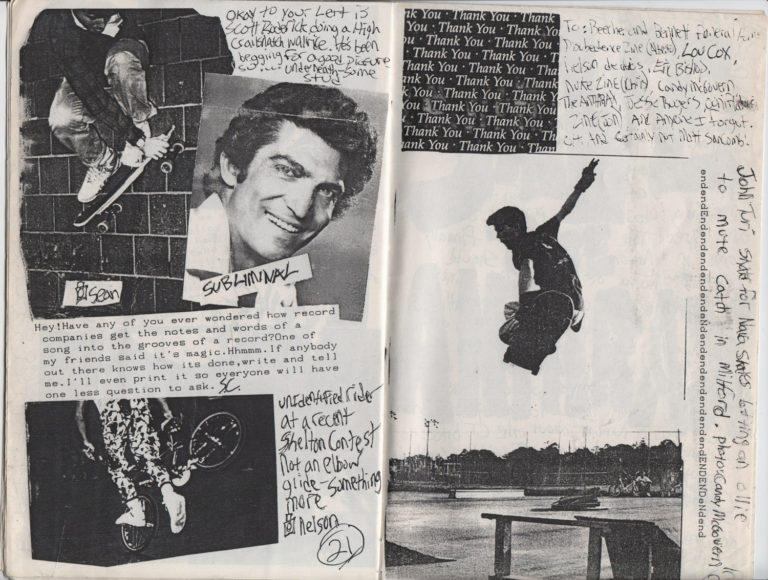 Okay to your Left is
Scott Roderick doing a High
wallride. He's been
begging for a good picture
so... underneath some
stud
Sean
SUBLIMINAL
Hey!Have any of you ever wondered how record
companies get the notes and words of a
song into the grooves of a record?One of
my friends said it's magic.Hhmmm.If anybody
out there knows how its done,write and tell
me.I'll even print it so everyone will have
one less question to ask. SC.
unidentified rider
at a recent
Shelton Contest
Not an elbow
glide-something
more
Nelson
21
Thank You · Thank You · Thank
You · Thank You · Thank You
Thank You · Thank You
You · Thank You · Thank You ·
Thank You · Thank You
Thank You · Thank You · Thank
You · Thank You · Thank You
Thank You · Thank You · Thank
You · Thank You · Thank You
Thank You · Thank You
To: Beecher and Bennett Funeral
Zine Lou Cox,
Nelson Eric
Nuke Zine (Chris) Candy McGovern
The ANTHRAX, Jesse Rogers,
Zine (Jon) And Anyone I forgot.
and certainly not Matt
John Turi skates for Nava skates busting an ollie
to mute catch in Milford. photo: Candy McGovern
endendEndendendendendendendendendeNdendendendendendendENDENDeNdend